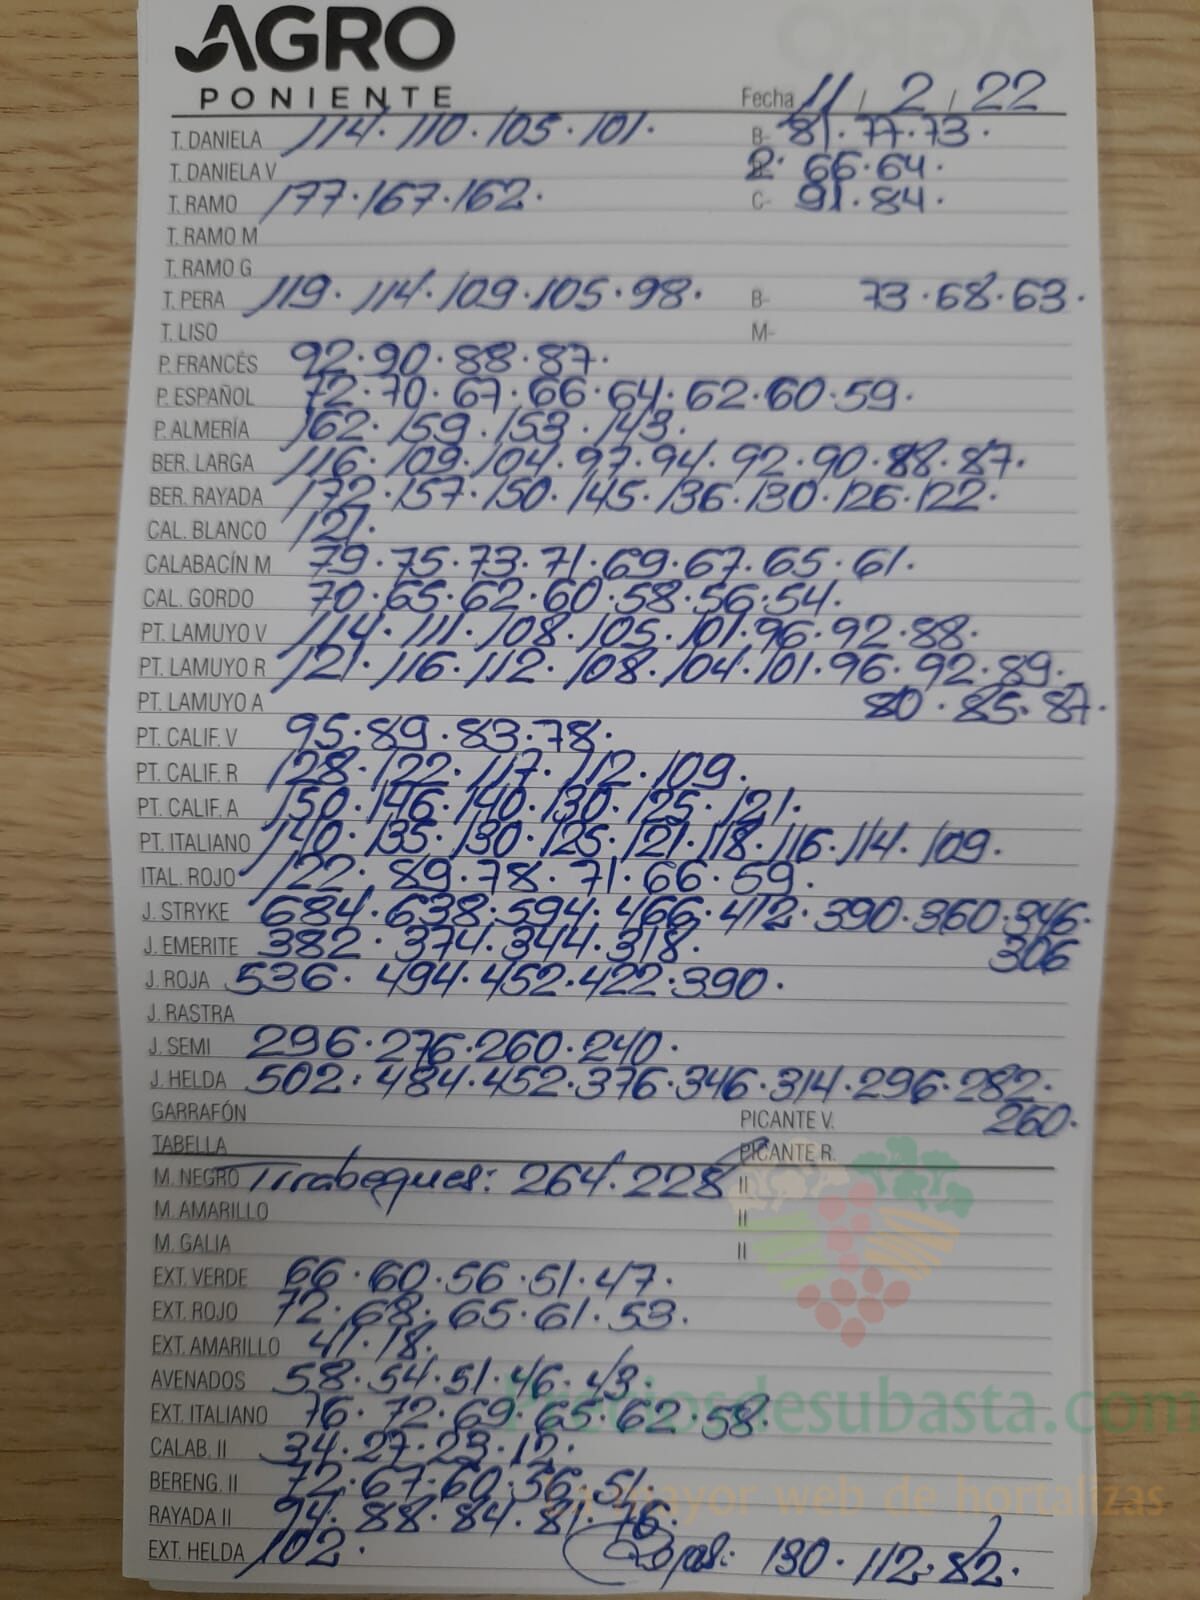 AGRO
PONIENTE
Fecha 11 / 2 / 22
T. DANIELA 114. 110. 105. 101. B- 81. 77. 73.
T. DANIELA V 2. 66. 64.
T. RAMO 177. 167. 162. C- 91. 84.
T. RAMO M
T. RAMO G
T. PERA 119. 114. 109. 105. 98. B- 73. 68. 63.
T. LISO M-
P. FRANCÉS 92. 90. 88. 87.
P. ESPAÑOL 72. 70. 67. 66. 64. 62. 60. 59.
P. ALMERÍA 162. 159. 153. 143.
BER. LARGA 116. 109. 104. 97. 94. 92. 90. 88. 87.
BER. RAYADA 172. 157. 150. 145. 136. 130. 126. 122.
CAL. BLANCO 121.
CALABACÍN M 79. 75. 73. 71. 69. 67. 65. 61.
CAL. GORDO 70. 65. 62. 60. 58. 56. 54.
PT. LAMUYO V 114. 111. 108. 105. 101. 96. 92. 88.
PT. LAMUYO R 121. 116. 112. 108. 104. 101. 96. 92. 89.
PT. LAMUYO A 80. 85. 87.
PT. CALIF. V 95. 89. 83. 78.
PT. CALIF. R 128. 122. 117. 112. 109.
PT. CALIF. A 150. 146. 140. 130. 125. 121.
PT. ITALIANO 140. 135. 130. 125. 121. 118. 116. 114. 109.
ITAL. ROJO 122. 89. 78. 71. 66. 59.
J. STRYKE 684. 638. 594. 466. 412. 390. 360. 346.
J. EMERITE 382. 374. 344. 318. 306
J. ROJA 536. 494. 452. 422. 390.
J. RASTRA
J. SEMI 296. 276. 260. 240.
J. HELDA 502. 484. 452. 376. 346. 314. 296. 282.
GARRAFÓN PICANTE V. 260.
TABELLA PICANTE R.
M. NEGRO Tirabeques: 264. 228 II
M. AMARILLO II
M. GALIA II
EXT. VERDE 66. 60. 56. 51. 47.
EXT. ROJO 72. 68. 65. 61. 53.
EXT. AMARILLO 41. 18.
AVENADOS 58. 54. 51. 46. 43.
EXT. ITALIANO 76. 72. 69. 65. 62. 58.
Preciosdesubasta.com
CALAB. II 34. 27. 23. 12.
BERENG. II 72. 67. 60. 56. 51.
La mayor web de hortalizas
RAYADA II 94. 88. 84. 81. 76.
EXT. HELDA 102. 130. 112. 82.